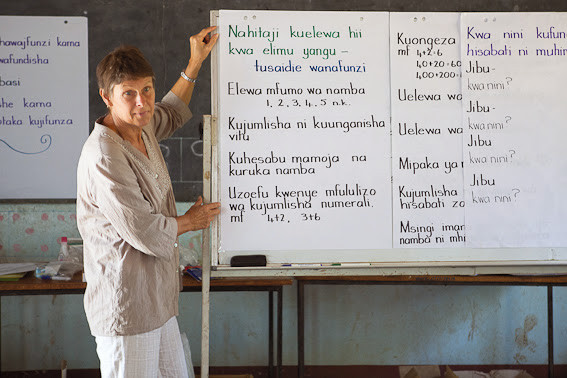 hawajfunzi kama
wafundisha
basi
she kama
taka kujifunza
Nahitaji kuelewa hii
kwa elimu yangu –
tusaidie wanafunzi
Elewa mfumo wa namba
1, 2, 3, 4, 5 n.k.
Kujumlisha ni kuunganisha
vitu
Kuhesabu mamoja na
kuruka namba
Uzoefu kwenye mfululizo
wa kujumlisha numerali.
mf 4+2, 3+6
Kuongeza
mf 4+2=6
40+20=60
400+200=
Uelewa wa
Uelewa wa
Mipaka ya
Kujumlisha
hisabati zo
Msingi imar
namba ni mhi
Kwa nini kufun
hisabati ni muhim
Jibu-
kwa nini?
Jibu-
kwa nini?
Jibu
kwa nini?
Jibu
kwa nini?